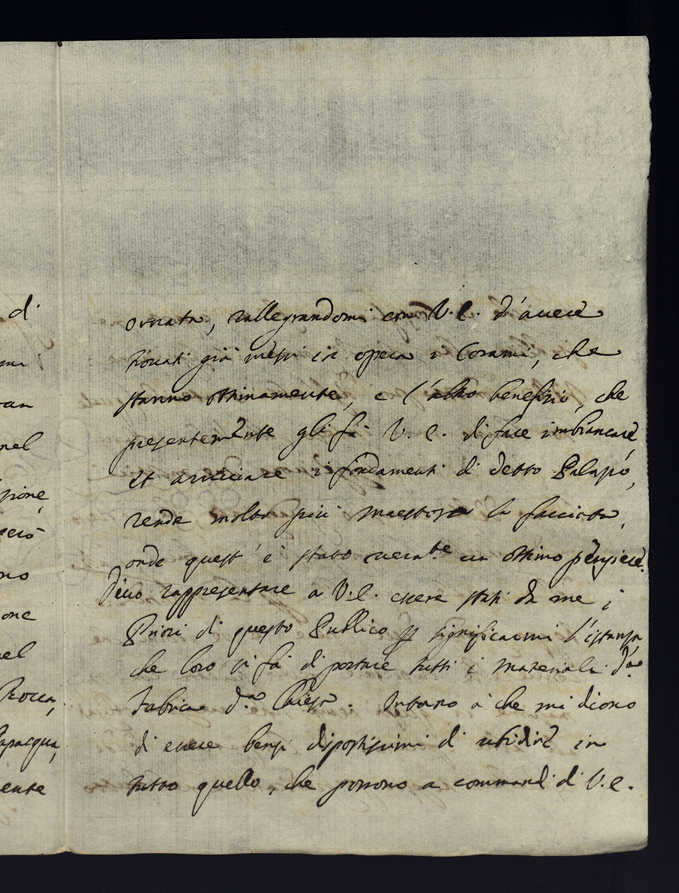 di
ornata, rallegrandomi con V. E. d'avere
trovati già messi in opera i Corami, che
stanno ottimamente, e l'altro benefizio, che
nel
presentemente gli fà V. E. di fare imbiancare
et arricciare i fondamenti di detto Palazzo,
rende molto più maestosa la facciata,
onde quest'è stato veram.te un ottimo pensiere.
Devo rappresentare a V. E. essere stati da me i
Priori di questo Publico p significarmi l'istanza
che loro si fà di portare tutti i materiali d.a
Rocca,
fabrica d.a Chiesa. Intorno à che mi dicono
di essere bensì dispostissimi di ubidire in
ente
tutto quello, che possono a commandi di V. E.